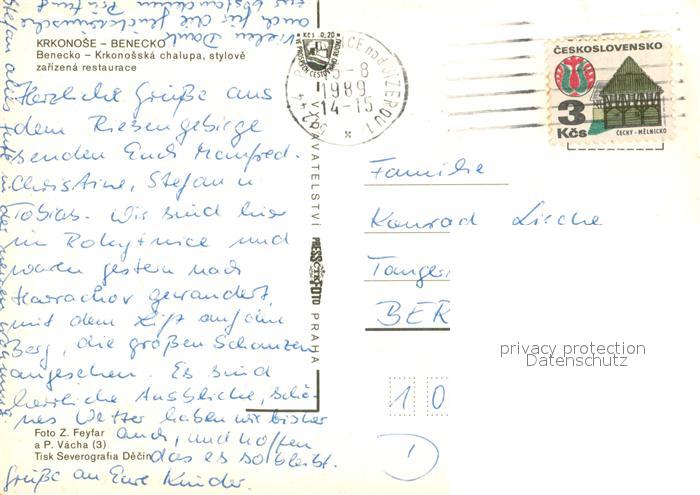 KRKONOŠE – BENECKO
Benecko – Krkonošská chalupa, stylově
zařízená restaurace
Herzliche Grüße aus
dem Riesengebirge
senden Euch Manfred,
Christine, Stefan u
Tobias. Wir sind hier
in Rokytnice und
waren gestern nach
Harrachov gewandert,
mit dem Lift auf eine
Berg, die großen Schanzen
angesehen. Es sind
herrliche Ausblicke, schö-
nes Wetter haben wir bisher
auch, und hoffen
das es so bleibt.
Grüße an Eure Kinder.
Vielen Dank
auch für die
Stefan alles Gute in der neuen
Foto Z. Feyfar
a P. Vácha (3)
Tisk Severografia Děčín
VYDAVATELSTVÍ PRESSFOTO PRAHA
ČTK
Kčs 0,20
NAD JIZEROU 1
-8
1989
14-15
512 44
ČESKOSLOVENSKO
3
Kčs
ČECHY - MĚLNICKO
Familie
Konrad
Tanger
BER
10
D
privacy protection
Datenschutz